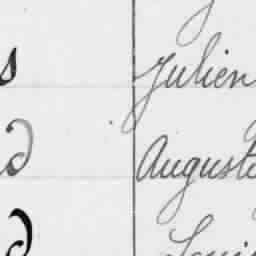 s Julien
d Auguste
d Louis